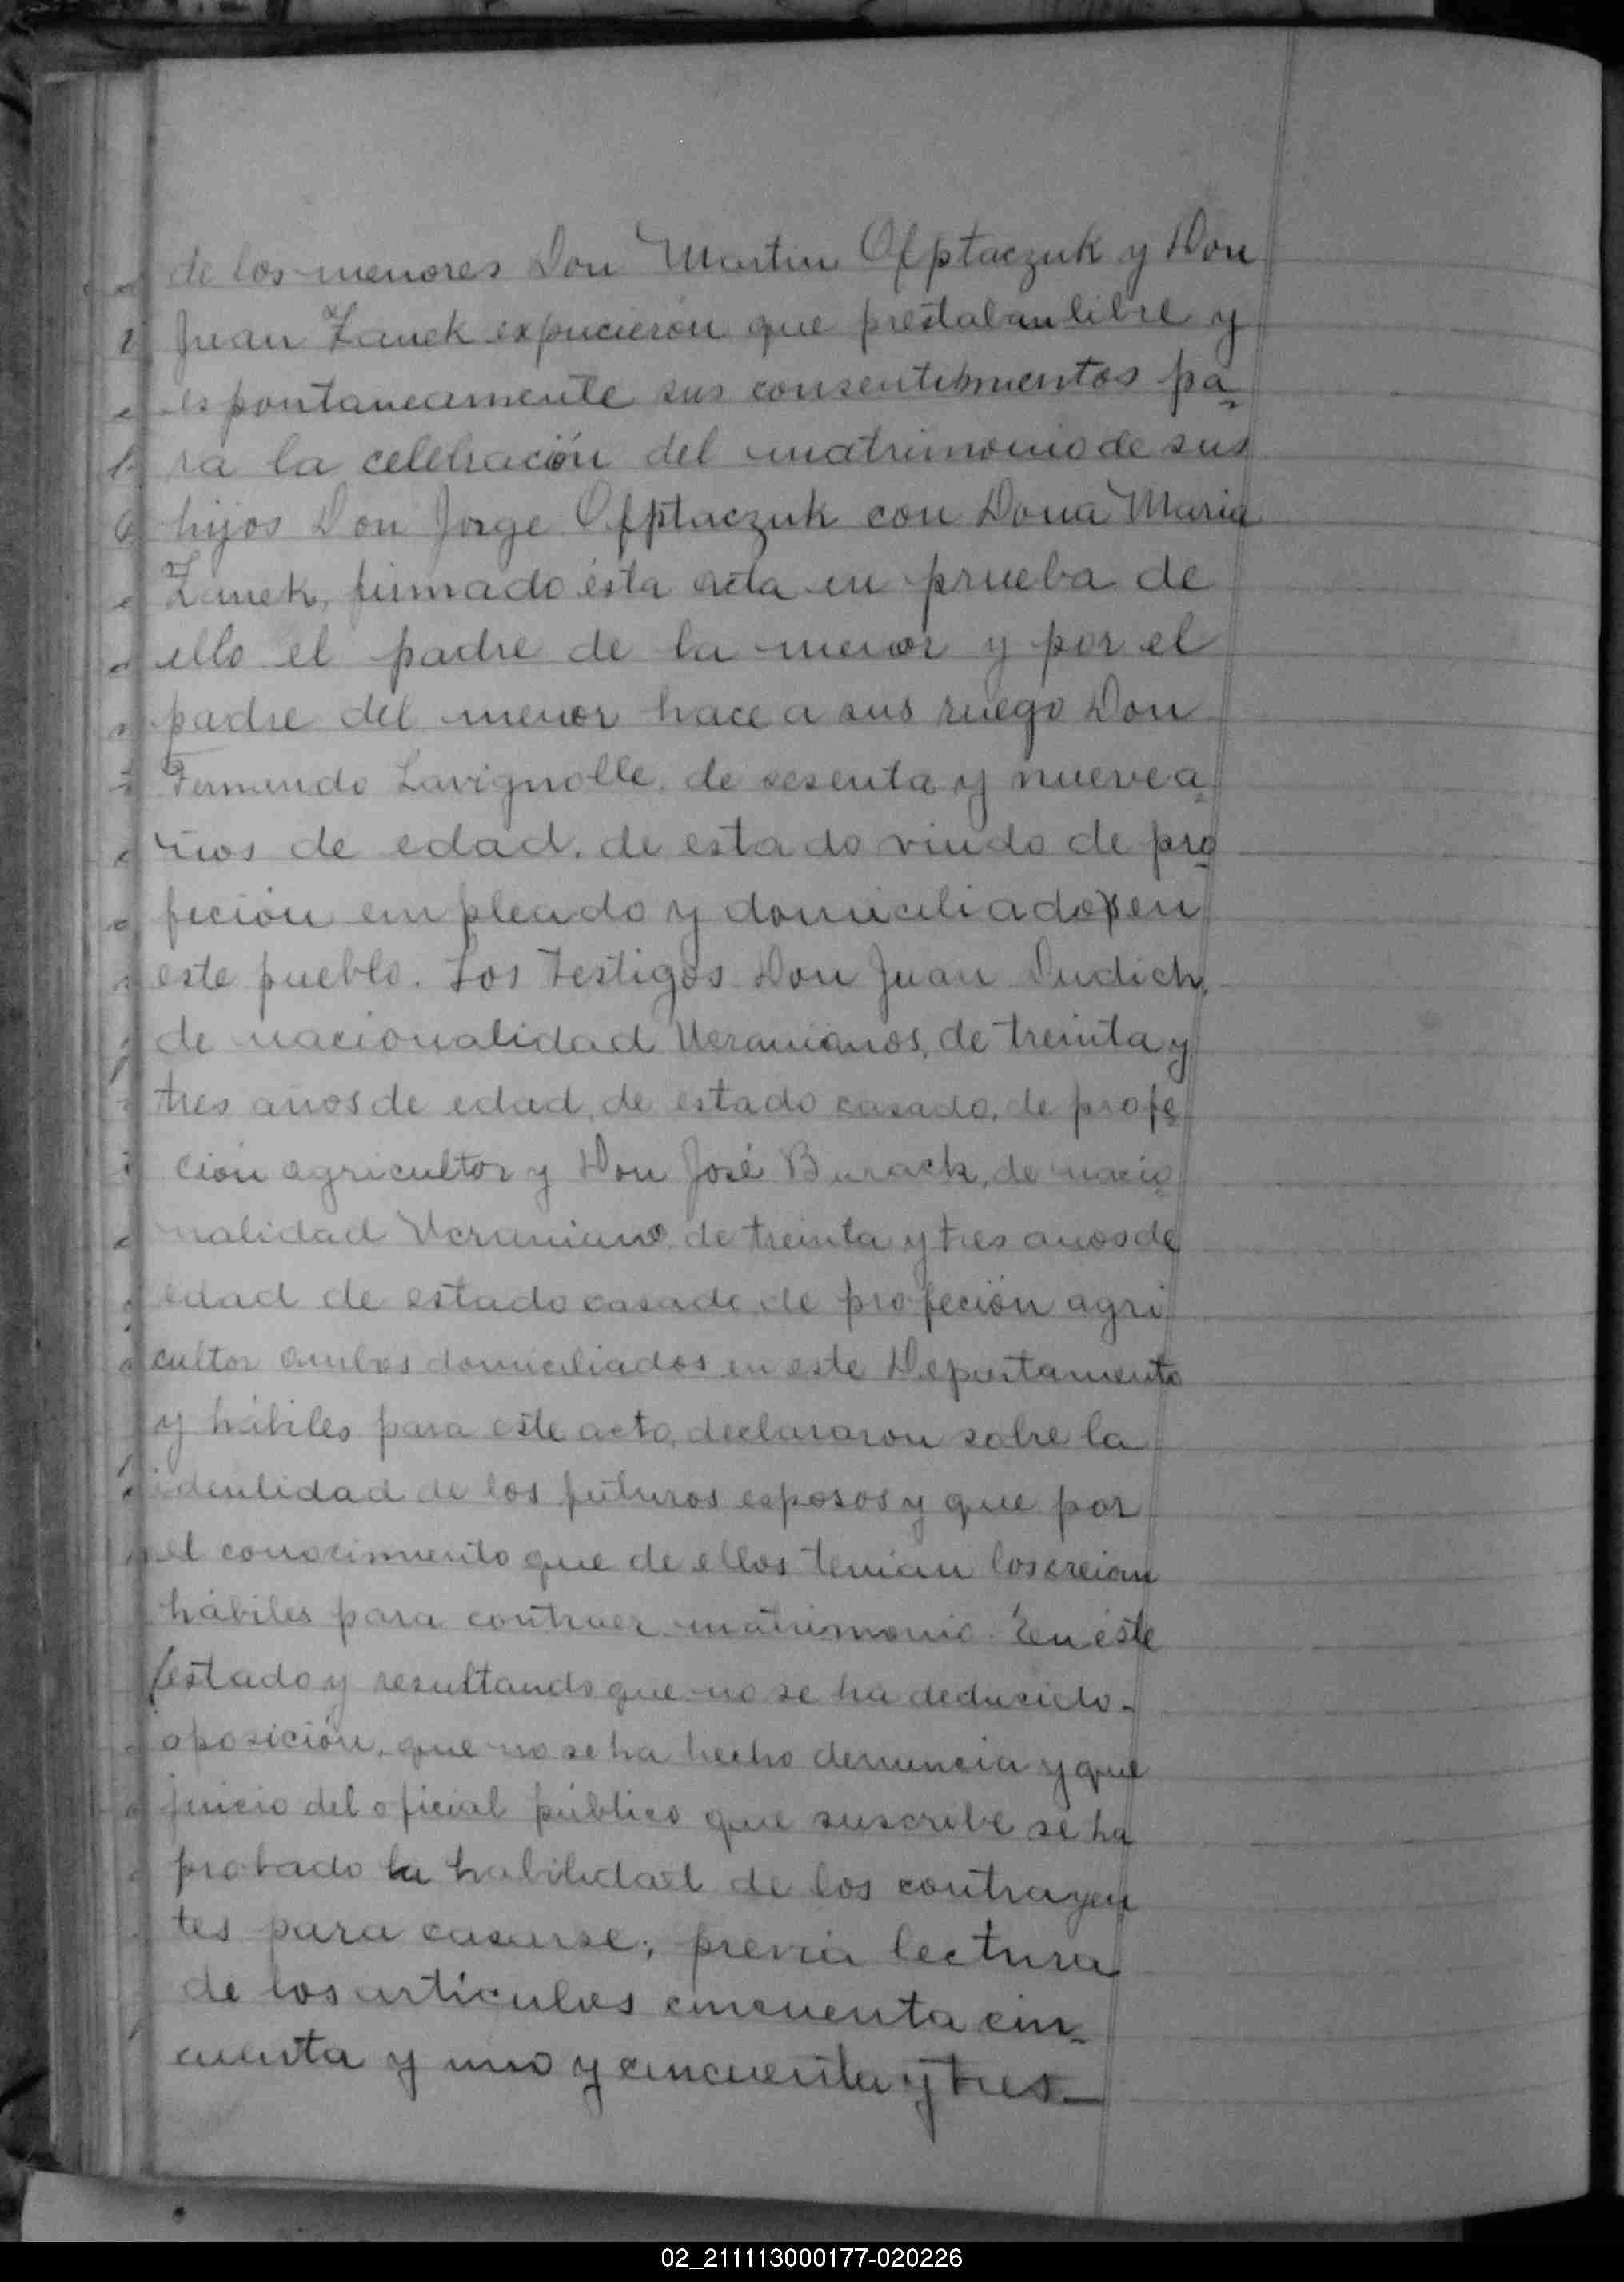 de los menores Don Martin Ofptaczuk y Don
Juan Zanek expucieron que prestaban libre y
espontaneamente sus consentimientos pa-
ra la celebración del matrimonio de sus
hijos Don Jorge Ofptaczuk con Dona Maria
Zanek, firmado ésta acta en prueba de
ello el padre de la menor y por el
padre del menor hace a sus ruego Don
Fernando Lavignolle, de sesenta y nueve a-
ños de edad, de estado viudo de pro-
feción empleado y domiciliados en
este pueblo. Los Testigos Don Juan Dudich,
de nacionalidad Ucranianos, de treinta y
tres anos de edad, de estado casado, de profe-
ción agricultor y Don José Burack, de nacio-
nalidad Ucraniano de treinta y tres anos de
edad de estado casado de profeción agri
cultor ambos domiciliados en este Departamento
y hábiles para este acto, declararon sobre la
identidad de los futuros esposos y que por
el conocimiento que de ellos tenian los creian
hábiles para contraer matrimonio. En éste
estado y resultando que no se ha deducido
oposición, que no se ha hecho denuncia y que
juicio del oficial público que suscribe se ha
probado la habilidad de los contrayen
tes para casarse; previa lectura
de los artículos cincuenta cin-
cuenta y uno y cincuenta y tres
02_211113000177-020226